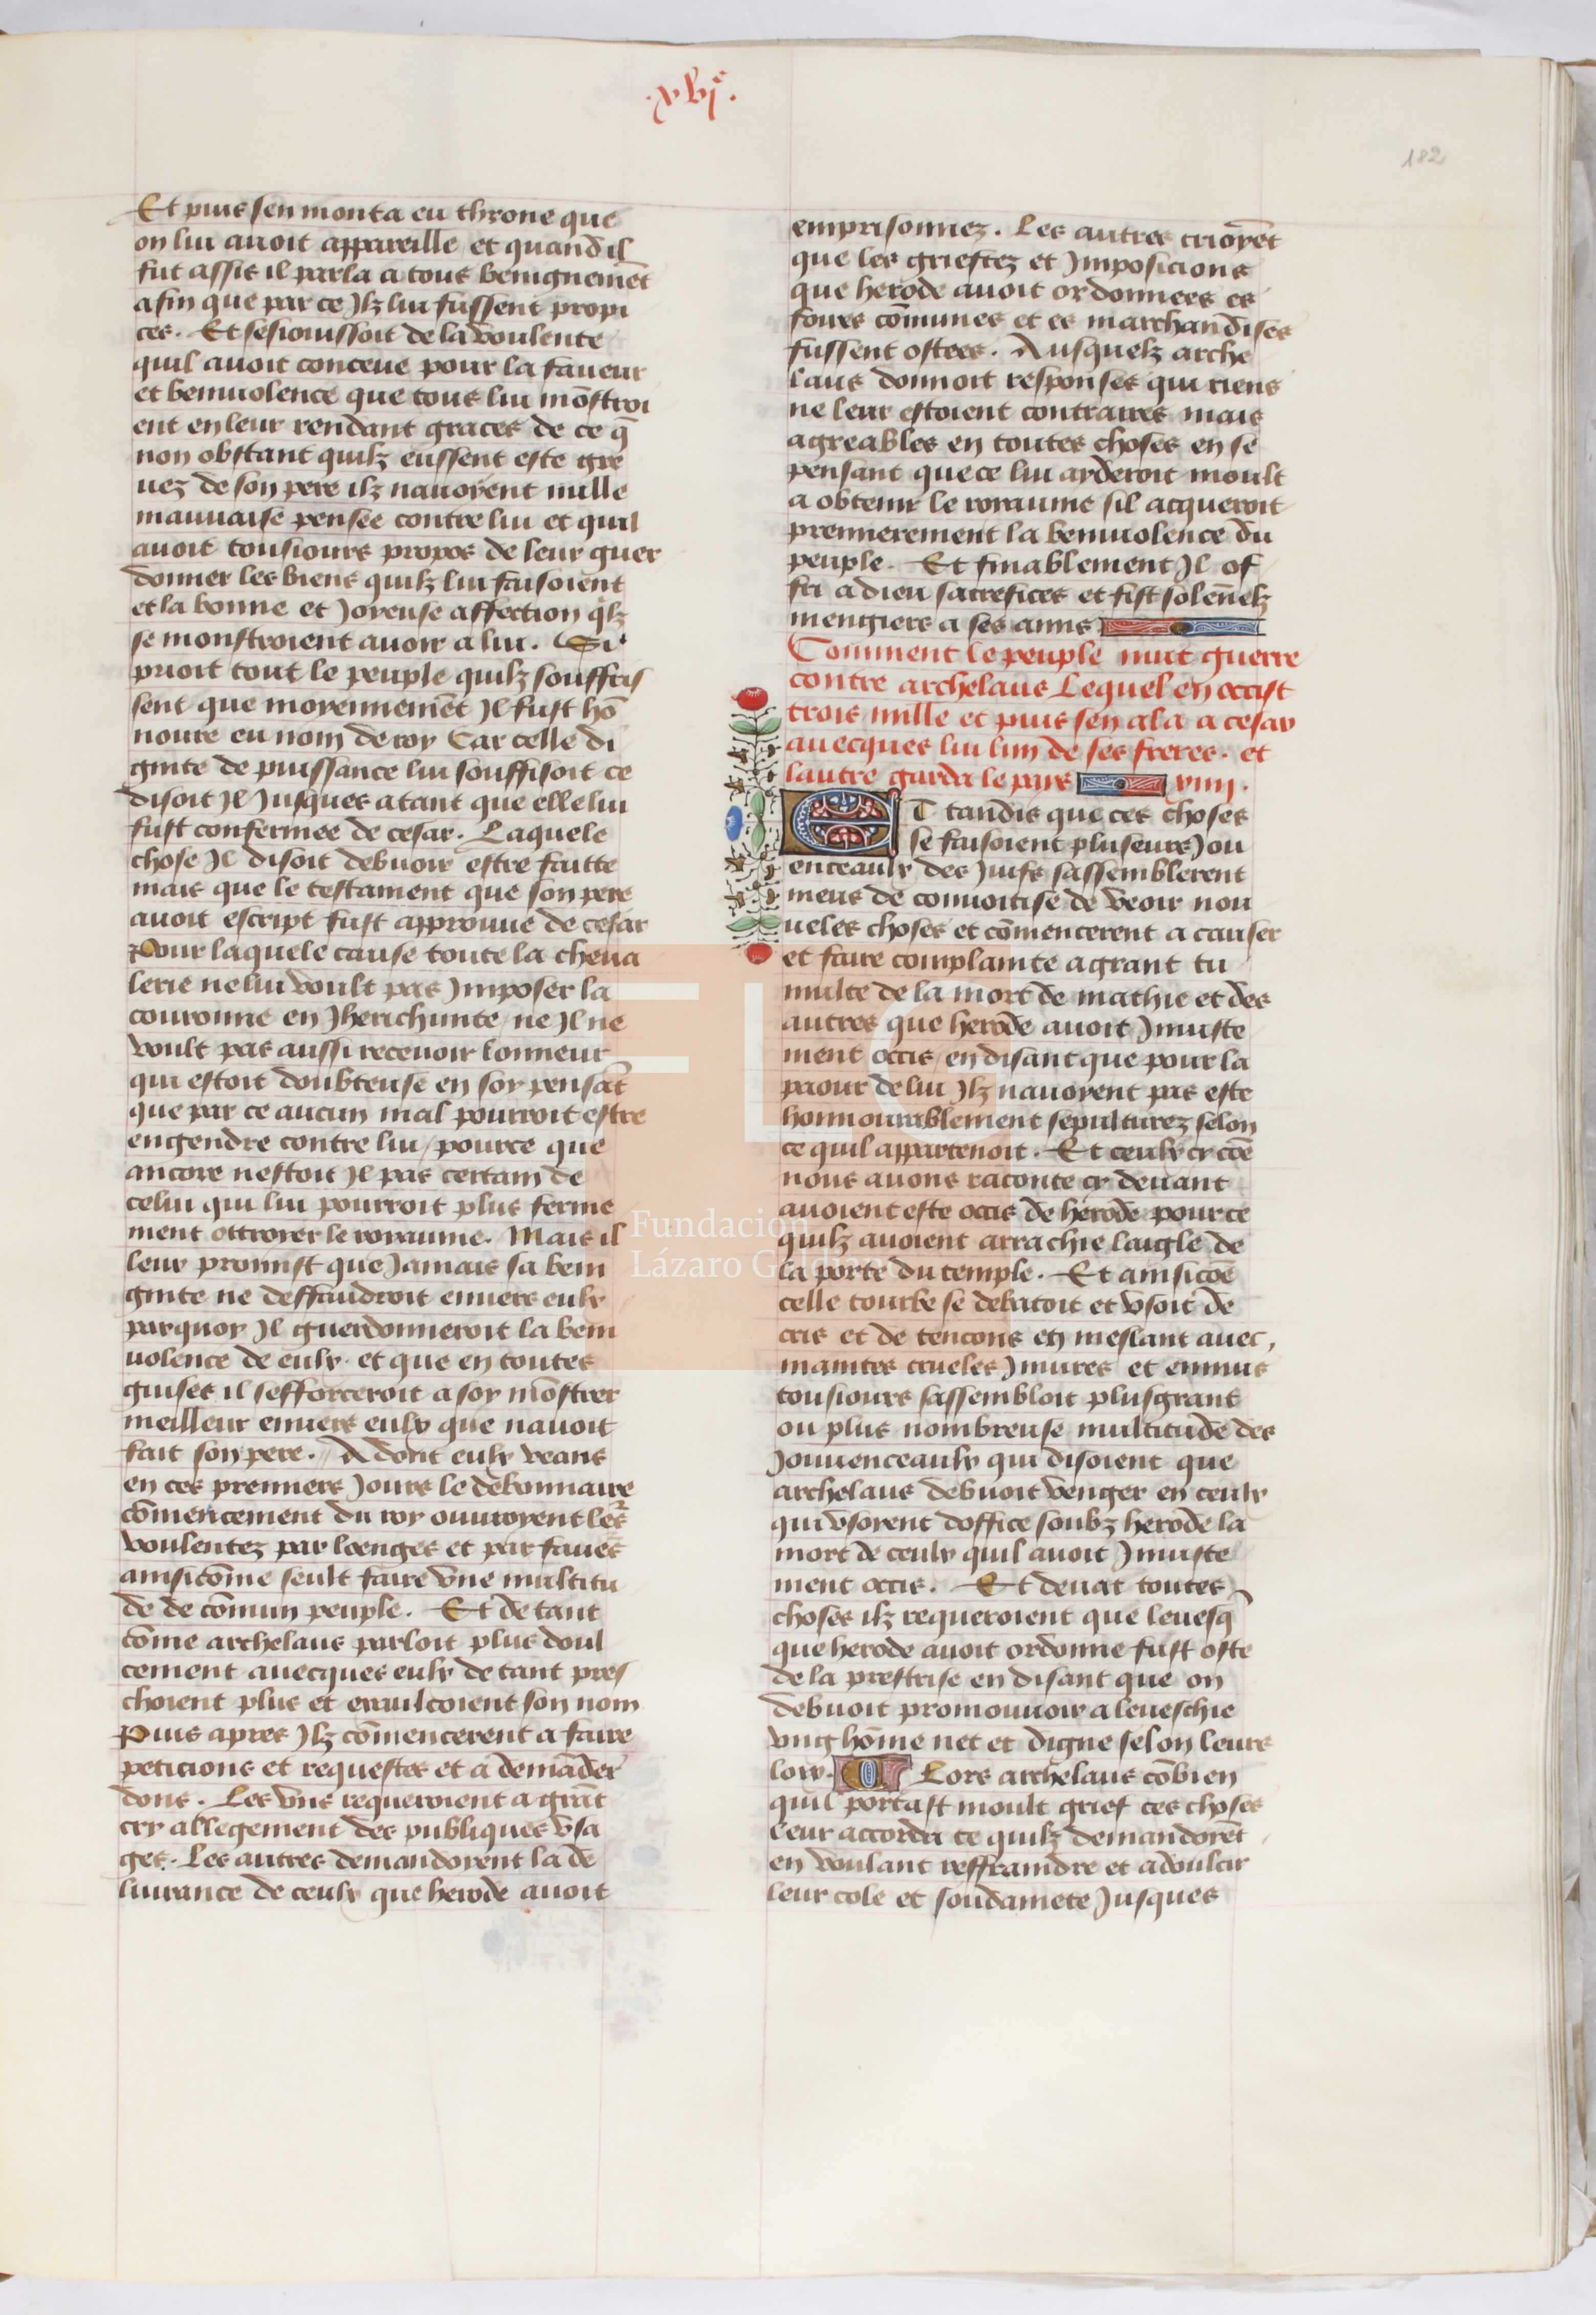 .xvje.
182
Et puis sen monta eu throne que
on lui auoit appareille et quand il
fut assis il parla a tous benignemēt
afin que par ce Jlz lui fussent propi
ces. Et sesiouissoit de la voulente
quil auoit conceue pour la faueur
et beniuolence que tous lui mōstroi
ent en leur rendant graces de ce q̄
non obstant quilz eussent este gre
uez de son pere ilz nauoyent nulle
mauuaise pensee contre lui et quil
auoit tousiours propos de leur guer
donner les biens quilz lui faisoient
et la bonne et Joyeuse affection qlz
se monstroient auoir a lui. Si
prioit tout le peuple quilz souffris
sent que moyennemēt Jl fust hō
noure eu nom de roy Car celle di
gnite de puissance lui souffisoit ce
disoit Jl Jusques a tant que elle lui
fust confermee de cesar. Laquele
chose Jl disoit debuoir estre faitte
mais que le testament que son pere
auoit escript fust approuue de cesar
Pour laquele cause toute la cheua
lerie ne lui voult pas Jmposer la
couronne en Jherichunte ne Jl ne
voult pas aussi receuoir lonneur
qui estoit doubteuse en soy pensāt
que par ce aucun mal pourroit estre
engendre contre lui / pource que
ancore nestoit Jl pas certain de
celui qui lui pourroit plus ferme
ment ottroyer le royaume. Mais il
leur promist que Jamais sa beni
gnite ne deffaudroit enuers eulx
parquoy Jl guerdonneroit la beni
uolence de eulx et que en toutes
guises il sefforceroit a soy mōstrer
meilleur enuers eulx que nauoit
fait son pere. Adont eulx veans
en ces premiers Jours le debonnaire
cōmencement du roy ouuroyent les
voulentez par loenges et par faues
ainsi cōme seult faire vne multitu
de de cōmun peuple. Et de tant
cōme archelaus parloit plus doul
cement auecques eulx de tant pres
choient plus et exaulcoient son nom
Puis apres Jlz cōmencerent a faire
peticions et requestes et a demāder
dons. Les vns requeroient a grāt
cry allegement des publiques vsa
ges. Les autres demandoyent la de
liurance de ceulx que herode auoit
emprisonnez. Les autres crioyēt
que les grieftez et Jmposicions
que herode auoit ordonnees es
foires cōmunes et es marchandises
fussent ostees. Ausquelz arche
laus donnoit responses qui riens
ne leur estoient contraires mais
agreables en toutes choses en se
pensant que ce lui ayderoit moult
a obtenir le royaume sil acqueroit
premierement la beniuolence du
peuple. Et finablement Jl of
fri a dieu sacrefices et fist solēnelz
mengiers a ses amis
Comment le peuple mut guerre
contre archelaus Lequel en occist
trois mille et puis sen ala a cesar
auecques lui lun de ses freres. et
lautre garda le pays viij.
ET tandis que ces choses
se faisoient pluseurs Jou
enceaulx des Juifs sassemblerent
meus de conuoitise de veoir nou
ueles choses et cōmencerent a causer
et faire complainte a grant tu
multe de la mort de mathie et des
autres que herode auoit Jniuste
ment occis / en disant que pour la
paour de lui Jlz nauoyent pas este
honnourablement sepulturez selon
ce quil appartenoit. Et ceulx cy cōe
nous auons raconte cy deuant
auoient este occis de herode pour ce
quilz auoient arrachie laigle de
la porte du temple. Et ainsi cōe
celle tourbe se debatoit et vsoit de
cris et de tencons en meslant auec,
maintes crueles Jniures et ennuis
tousiours sassembloit plus grant
ou plus nombreuse multitude des
Jouuenceaulx qui disoient que
archelaus debuoit venger en ceulx
qui vsoyent doffice soubz herode la
mort de ceulx quil auoit Jniuste
ment occis. Et deuāt toutes
choses ilz requeroient que leuesq̄
que herode auoit ordonne fust oste
de la prestrise en disant que on
debuoit promouuoir a leueschie
vng hōme net et digne selon leurs
loix. Lors archelaus cōbien
quil portast moult grief ces choses
leur accorda ce quilz demandoyēt
en voulant reffraindre et adoulcir
leur cole et soudainete Jusques
FLG
Fundación
Lázaro Galdiano